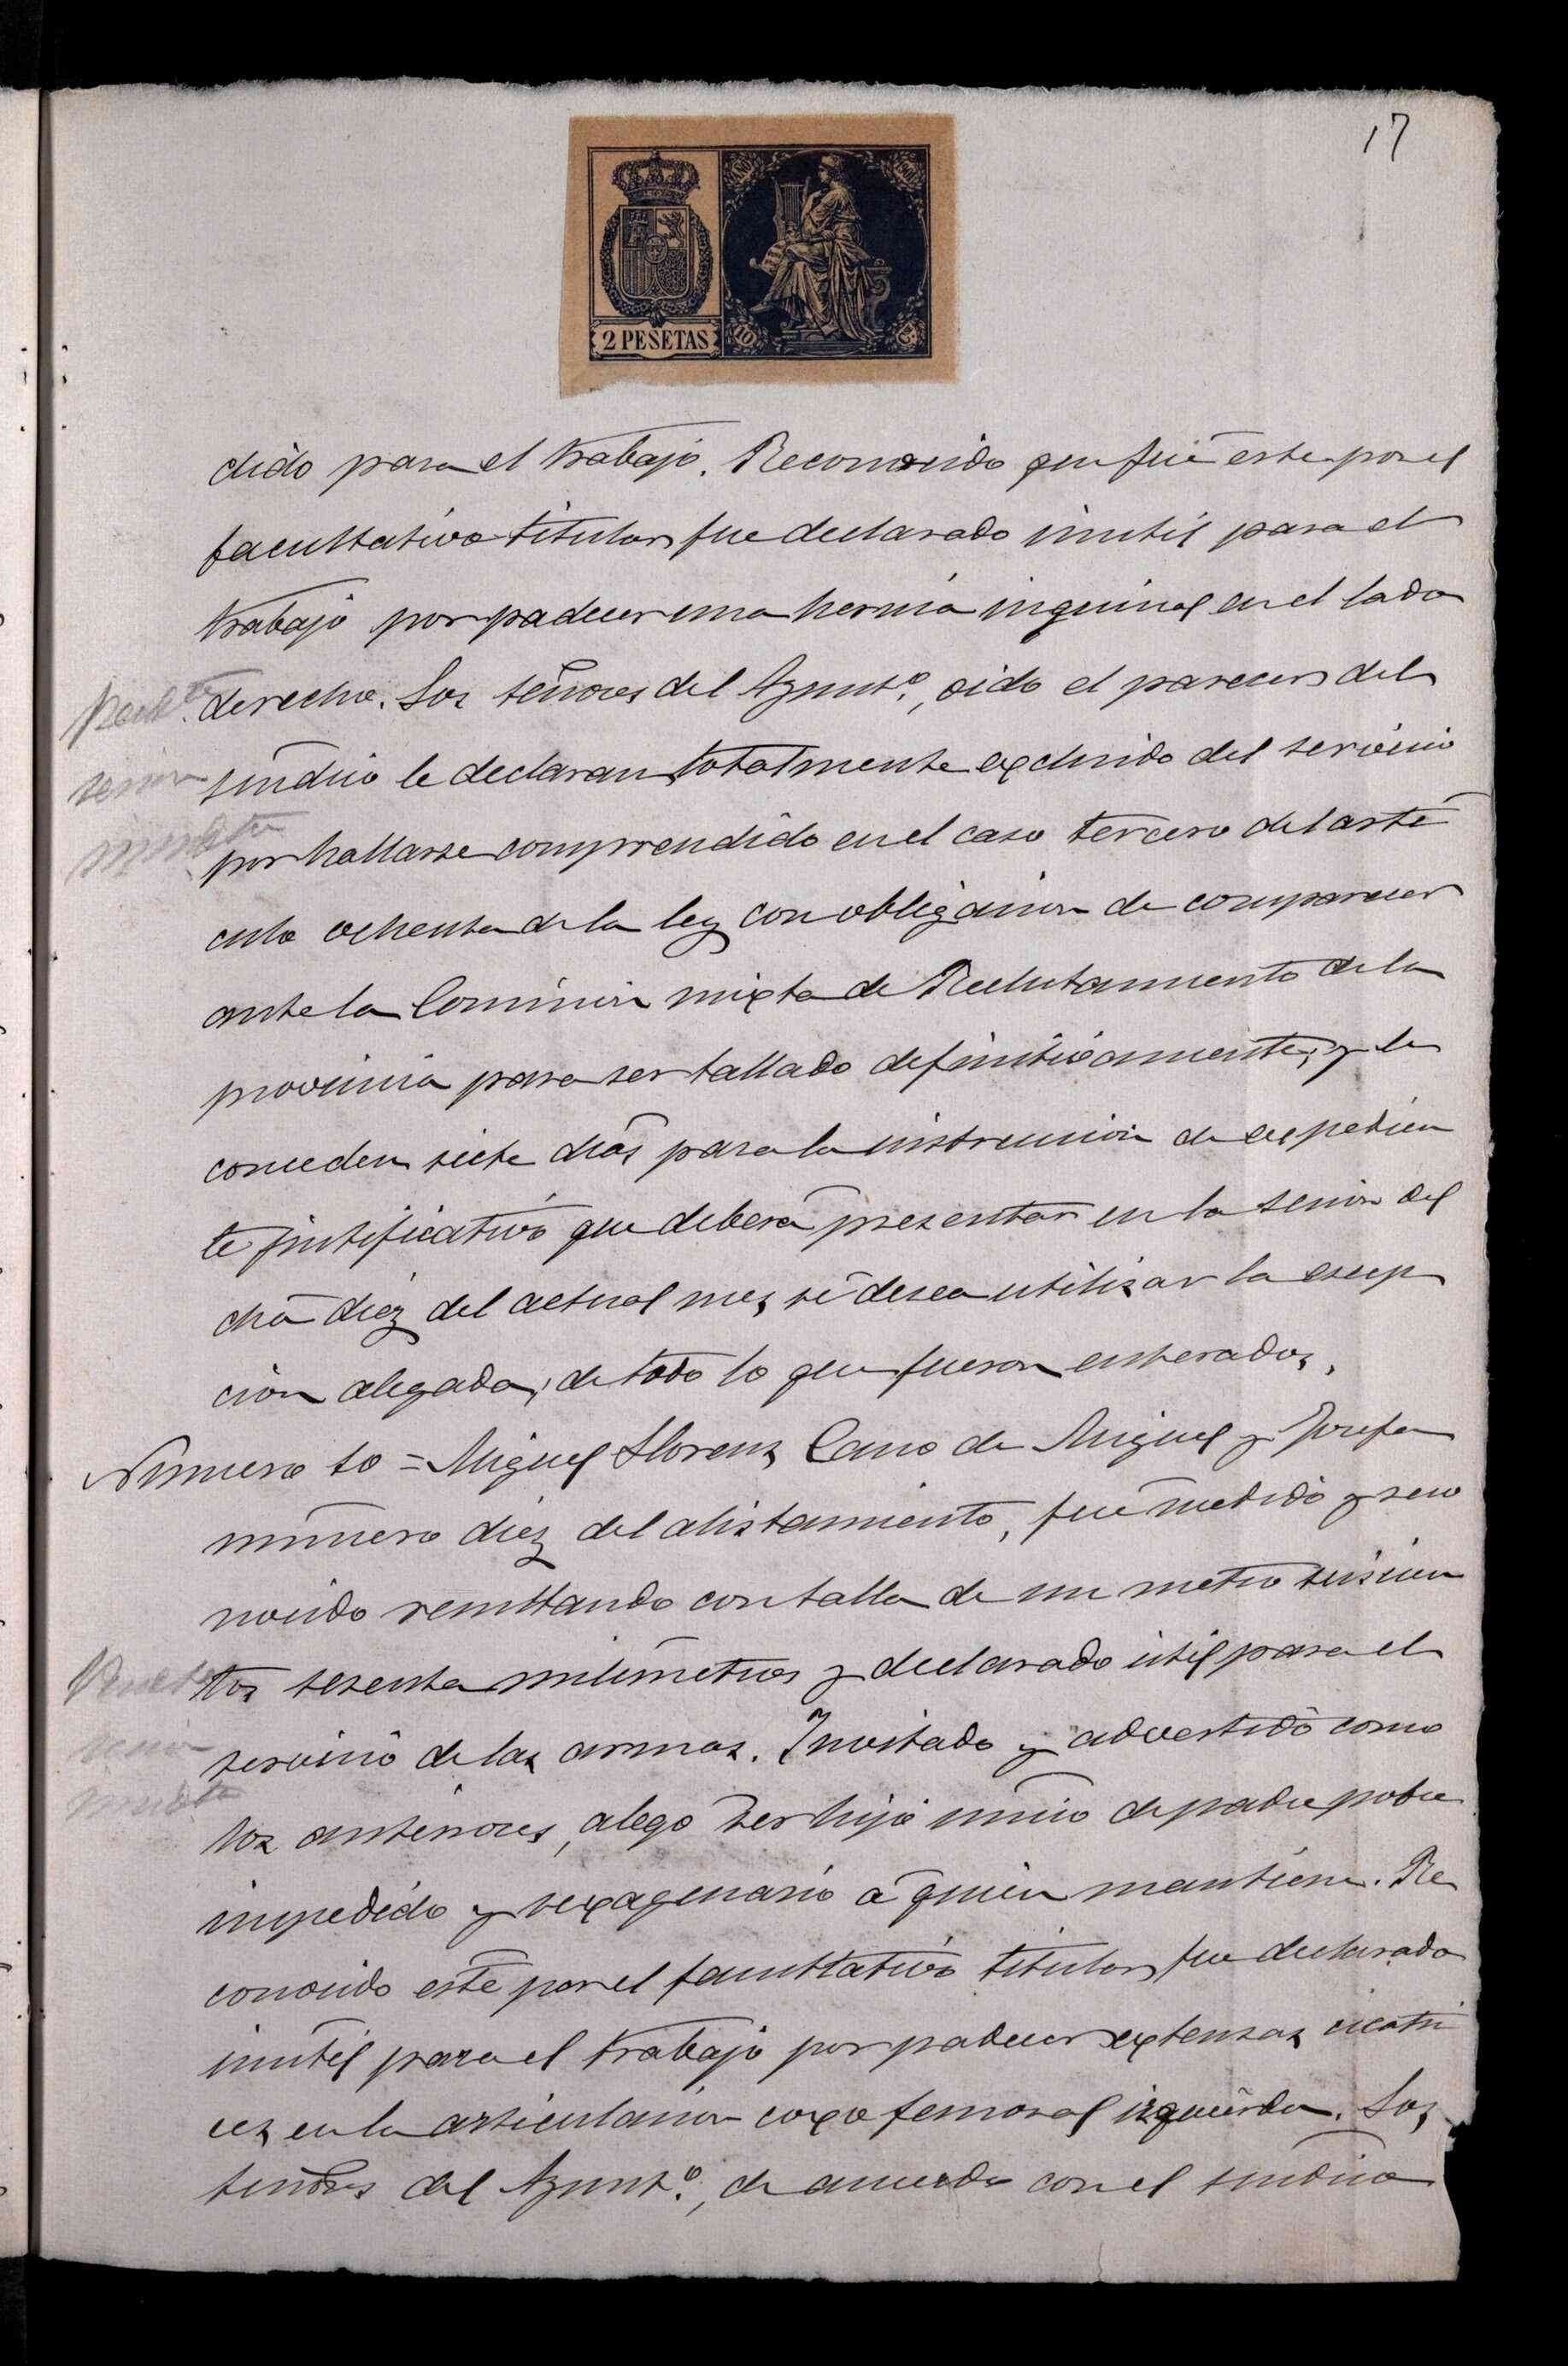 17
2 PESETAS
10
dido para el trabajo. Reconocido que fué este por el
facultativo titular fue declarado inutil para el
trabajo por padecer una hernia inguinal en el lado
derecho. Los señores del Ayunt.º, oido el parecer del
sindico le declaran totalmente excluido del servicio
por hallarse comprendido en el caso tercero del artí
culo ochenta de la ley con obligacion de comparecer
ante la Comision mixta de Reclutamiento de la
provincia para ser tallado definitivamente, y le
conceden siete dias para la instruccion de expedien
te justificativo que deberá presentar en la sesion del
dia diez del actual mes, si desea utilizar la escep
cion alegada; de todo lo que fueron enterados.
Número 10 = Miguel Llorens Cano de Miguel y Josefa
número diez del alistamiento, fué medido y reco
nocido resultando con talla de un metro seiscien
tos sesenta milimetros y declarado útil para el
servicio de las armas. Invitado y advertido como
los anteriores, alegó ser hijo único de padre pobre
impedido y sexagenario á quien mantiene. Re
conocido este por el facultativo titular fue declarado
inutil para el trabajo por padecer extensas cicatri
ces en la articulacion coxo femoral izquierda. Los
señores del Ayunt.º, de acuerdo con el sindico